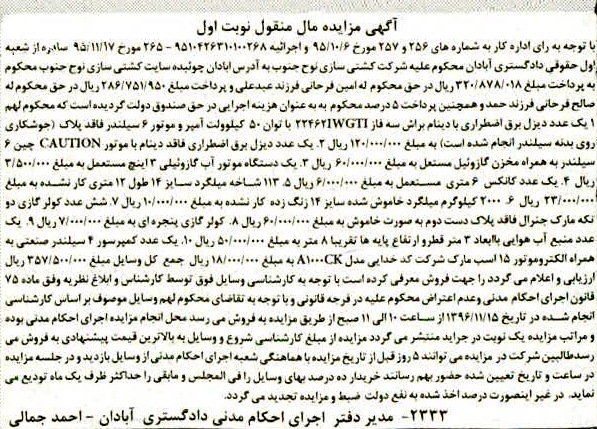 آگهی مزایده مال منقول نوبت اول
با توجه به رای اداره کار به شماره های ۲۵۶ و ۲۵۷ مورخ ۹۵/۱۰/۶ و اجرائیه ۹۵۱۰۴۲۶۳۱۰۱۰۰۲۶۸ - ۲۶۵ مورخ ۹۵/۱۱/۱۷ صادره از شعبه
اول حقوقی دادگستری آبادان محکوم علیه شرکت کشتی سازی نوح جنوب به آدرس ابادان چوئبده سایت کشتی سازی نوح جنوب محکوم
به پرداخت مبلغ ۳۲۰/۸۷۸/۰۱۸ ریال در حق محکوم له امین فرحانی فرزند عبدعلی و پرداخت مبلغ ۲۸۶/۷۵۱/۹۵۰ ریال در حق محکوم له
صالح فرحانی فرزند حمد و همچنین پرداخت ۵ درصد محکوم به به عنوان هزینه اجرایی در حق صندوق دولت گردیده است که محکوم لهم
۱ یک عدد دیزل برق اضطراری با دینام براش سه فاز ۲۲۴۶۲IWGTI با توان ۵۰ کیلوولت آمپر و موتور ۶ سیلندر فاقد پلاک (جوشکاری
روی بدنه سیلندر انجام شده است) به مبلغ ۱۲۰/۰۰۰/۰۰۰ ریال ۲. یک عدد دیزل برق اضطراری فاقد دینام با موتور CAUTION چین ۶
سیلندر به همراه مخزن گازوئیل مستعل به مبلغ ۶۰/۰۰۰/۰۰۰ ریال ۳. یک دستگاه موتور آب گازوئیلی ۳ اینچ مستعمل به مبلغ ۳/۵۰۰/۰۰۰
ریال ۴. یک عدد کانکس ۶ متری مستعمل به مبلغ ۶/۰۰۰/۰۰۰ ریال ۵. ۱۱۳ شاخه میلگرد سایز ۱۴ طول ۱۲ متری کار نشده به مبلغ
۲۳/۰۰۰/۰۰۰ ریال ۶. ۲۰۰۰ کیلوگرم میلگرد خاموش شده سایز ۱۴ زنگ زده کار نشده به مبلغ ۱۰/۰۰۰/۰۰۰ ریال ۷. شش عدد کولر گازی دو
تکه مارک جنرال فاقد پلاک دست دوم به صورت خاموش به مبلغ ۶۰/۰۰۰/۰۰۰ ریال ۸. کولر گازی پنجره ای به مبلغ ۷/۰۰۰/۰۰۰ ریال ۹. یک
عدد منبع آب هوایی باابعاد ۳ متر قطر و ارتفاع پایه ها تقریبا ۸ متر به مبلغ ۵۰/۰۰۰/۰۰۰ ریال ۱۰. یک عدد کمپرسور ۴ سیلندر صنعتی به
همراه الکتروموتور ۱۵ اسب مارک شرکت کد خدایی مدل A۱۰۰۰CK به مبلغ ۱۸/۰۰۰/۰۰۰ ریال جمع کل وسایل مبلغ ۳۵۷/۵۰۰/۰۰۰ ریال
ارزیابی و اعلام می گردد را جهت فروش معرفی کرده است با توجه به کارشناسی وسایل فوق توسط کارشناس و ابلاغ نظریه وفق ماده ۷۵
قانون اجرای احکام مدنی وعدم اعتراض محکوم علیه در فرجه قانونی و با توجه به تقاضای محکوم لهم وسایل موصوف بر اساس کارشناسی
انجام شده در تاریخ ۱۳۹۶/۱۱/۱۵ از ساعت ۱۰ الی ۱۱ صبح از طریق مزایده به فروش می رسد محل انجام مزایده اجرای احکام مدنی بوده
و مراتب مزایده یک نوبت در جراید منتشر می گردد مزایده از مبلغ کارشناسی شروع و وسایل به بالاترین قیمت پیشنهادی به فروش می
رسد طالبین شرکت در مزایده می توانند ۵ روز قبل از تاریخ مزایده با هماهنگی شعبه اجرای احکام مدنی از وسایل بازدید و در جلسه مزایده
در ساعت و تاریخ تعیین شده حضور بهم رسانند خریدار ده درصد بهای وسایل را فی المجلس و مابقی را حداکثر ظرف یک ماه تودیع می
نماید. در غیر اینصورت درصد اخذ شده به نفع دولت ضبط و مزایده تجدید می گردد.
۲۳۳۳- مدیر دفتر اجرای احکام مدنی دادگستری آبادان - احمد جمالی